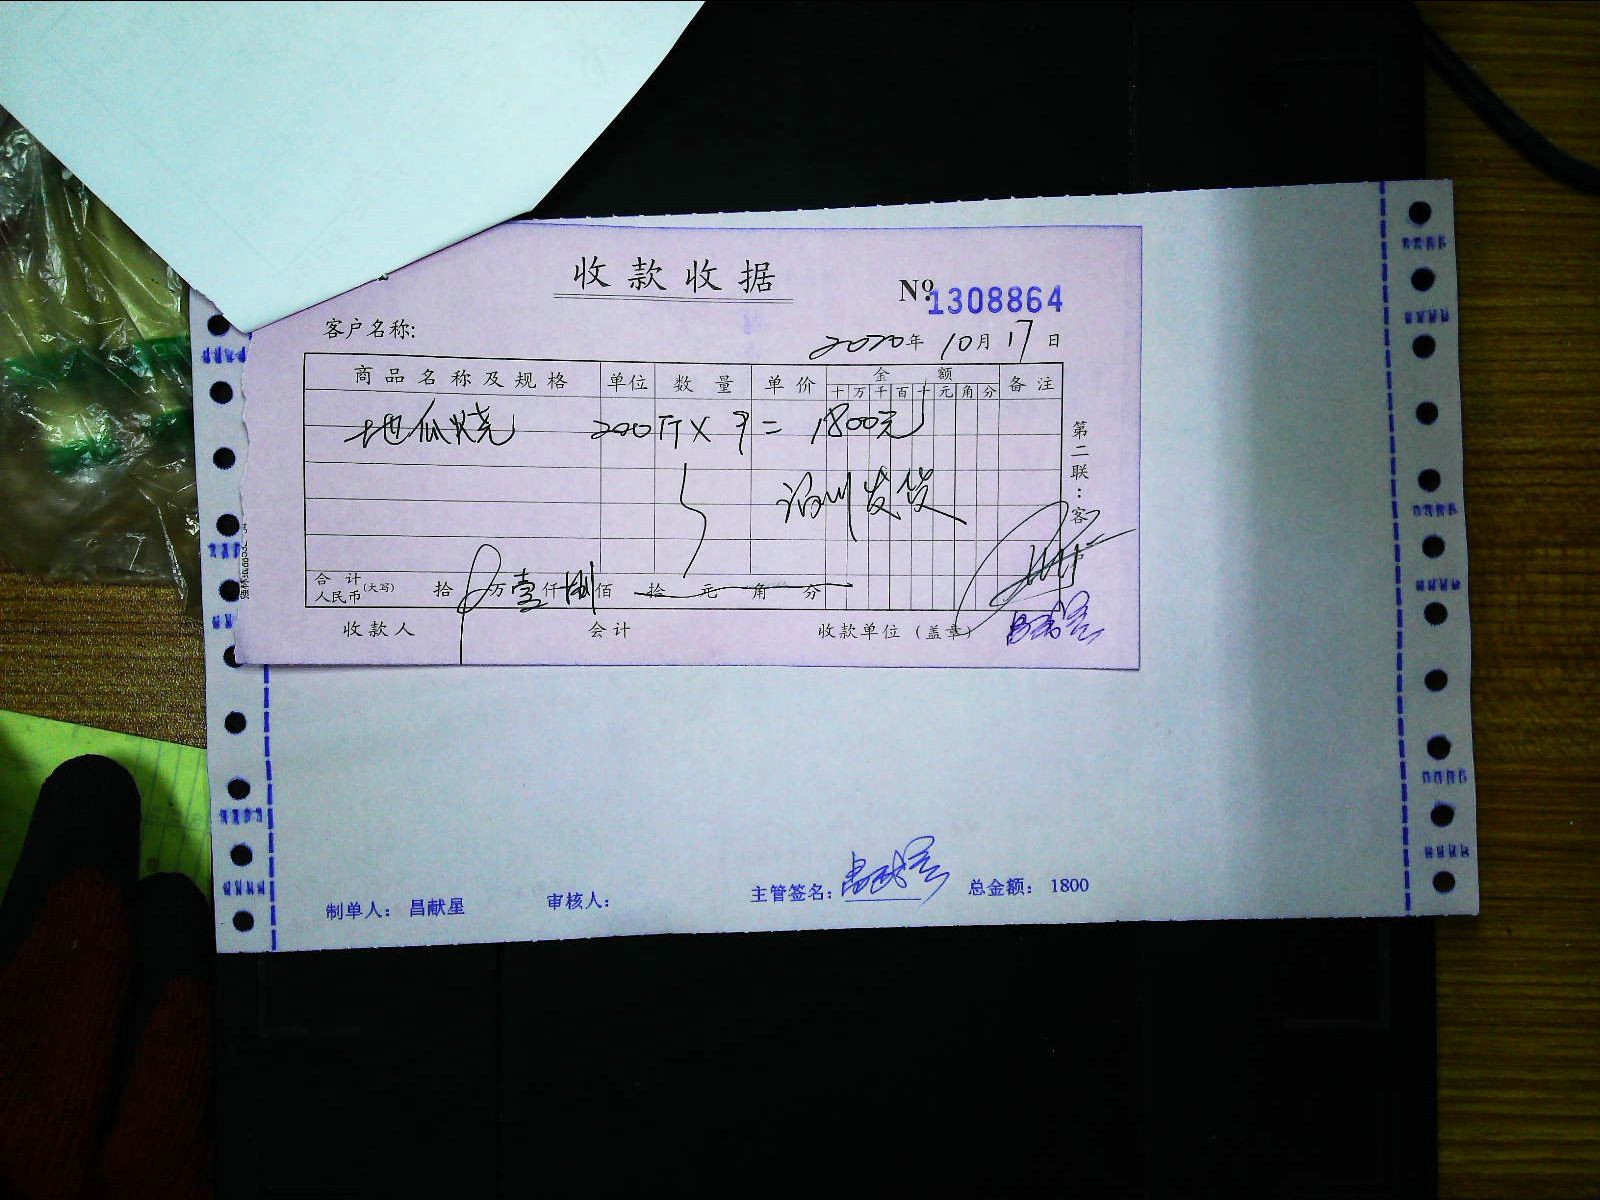 收款收据
№ 1308864
客户名称:
2020年 10月 17日
商品名称及规格 单位 数量 单价 金额 备注
十 万 千 百 十 元 角 分
地瓜烧 200斤 X 9 = 1800元
发货
第二联:客
合计人民币(大写) 拾 万 壹 仟 捌 佰 拾 元 角 分
收款人 会计 收款单位(盖章)
昌献星
制单人: 昌献星 审核人: 主管签名: 昌献星 总金额: 1800